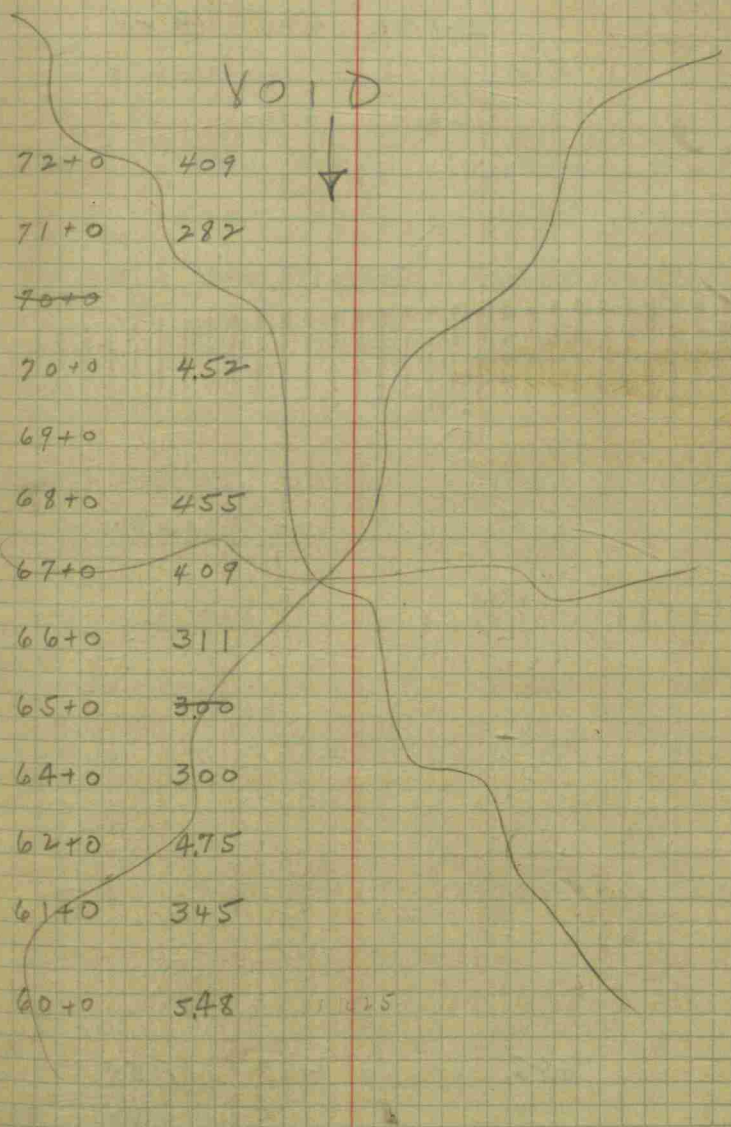 VOID
72+0 409
71+0 282
70+0
70+0 4.52
69+0
68+0 455
67+0 409
66+0 311
65+0 3.00
64+0 300
62+0 4.75
61+0 345
60+0 5.48